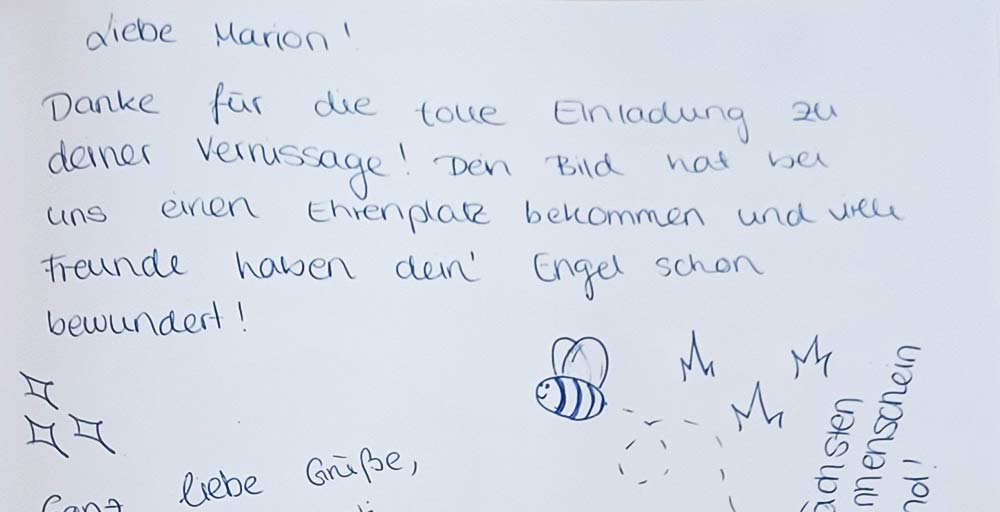 Liebe Marion!
Danke für die tolle Einladung zu
deiner Vernissage! Dein Bild hat bei
uns einen Ehrenplatz bekommen und viele
Freunde haben dein' Engel schon
bewundert!
Ganz liebe Grüße,
nächsten
nnenschein